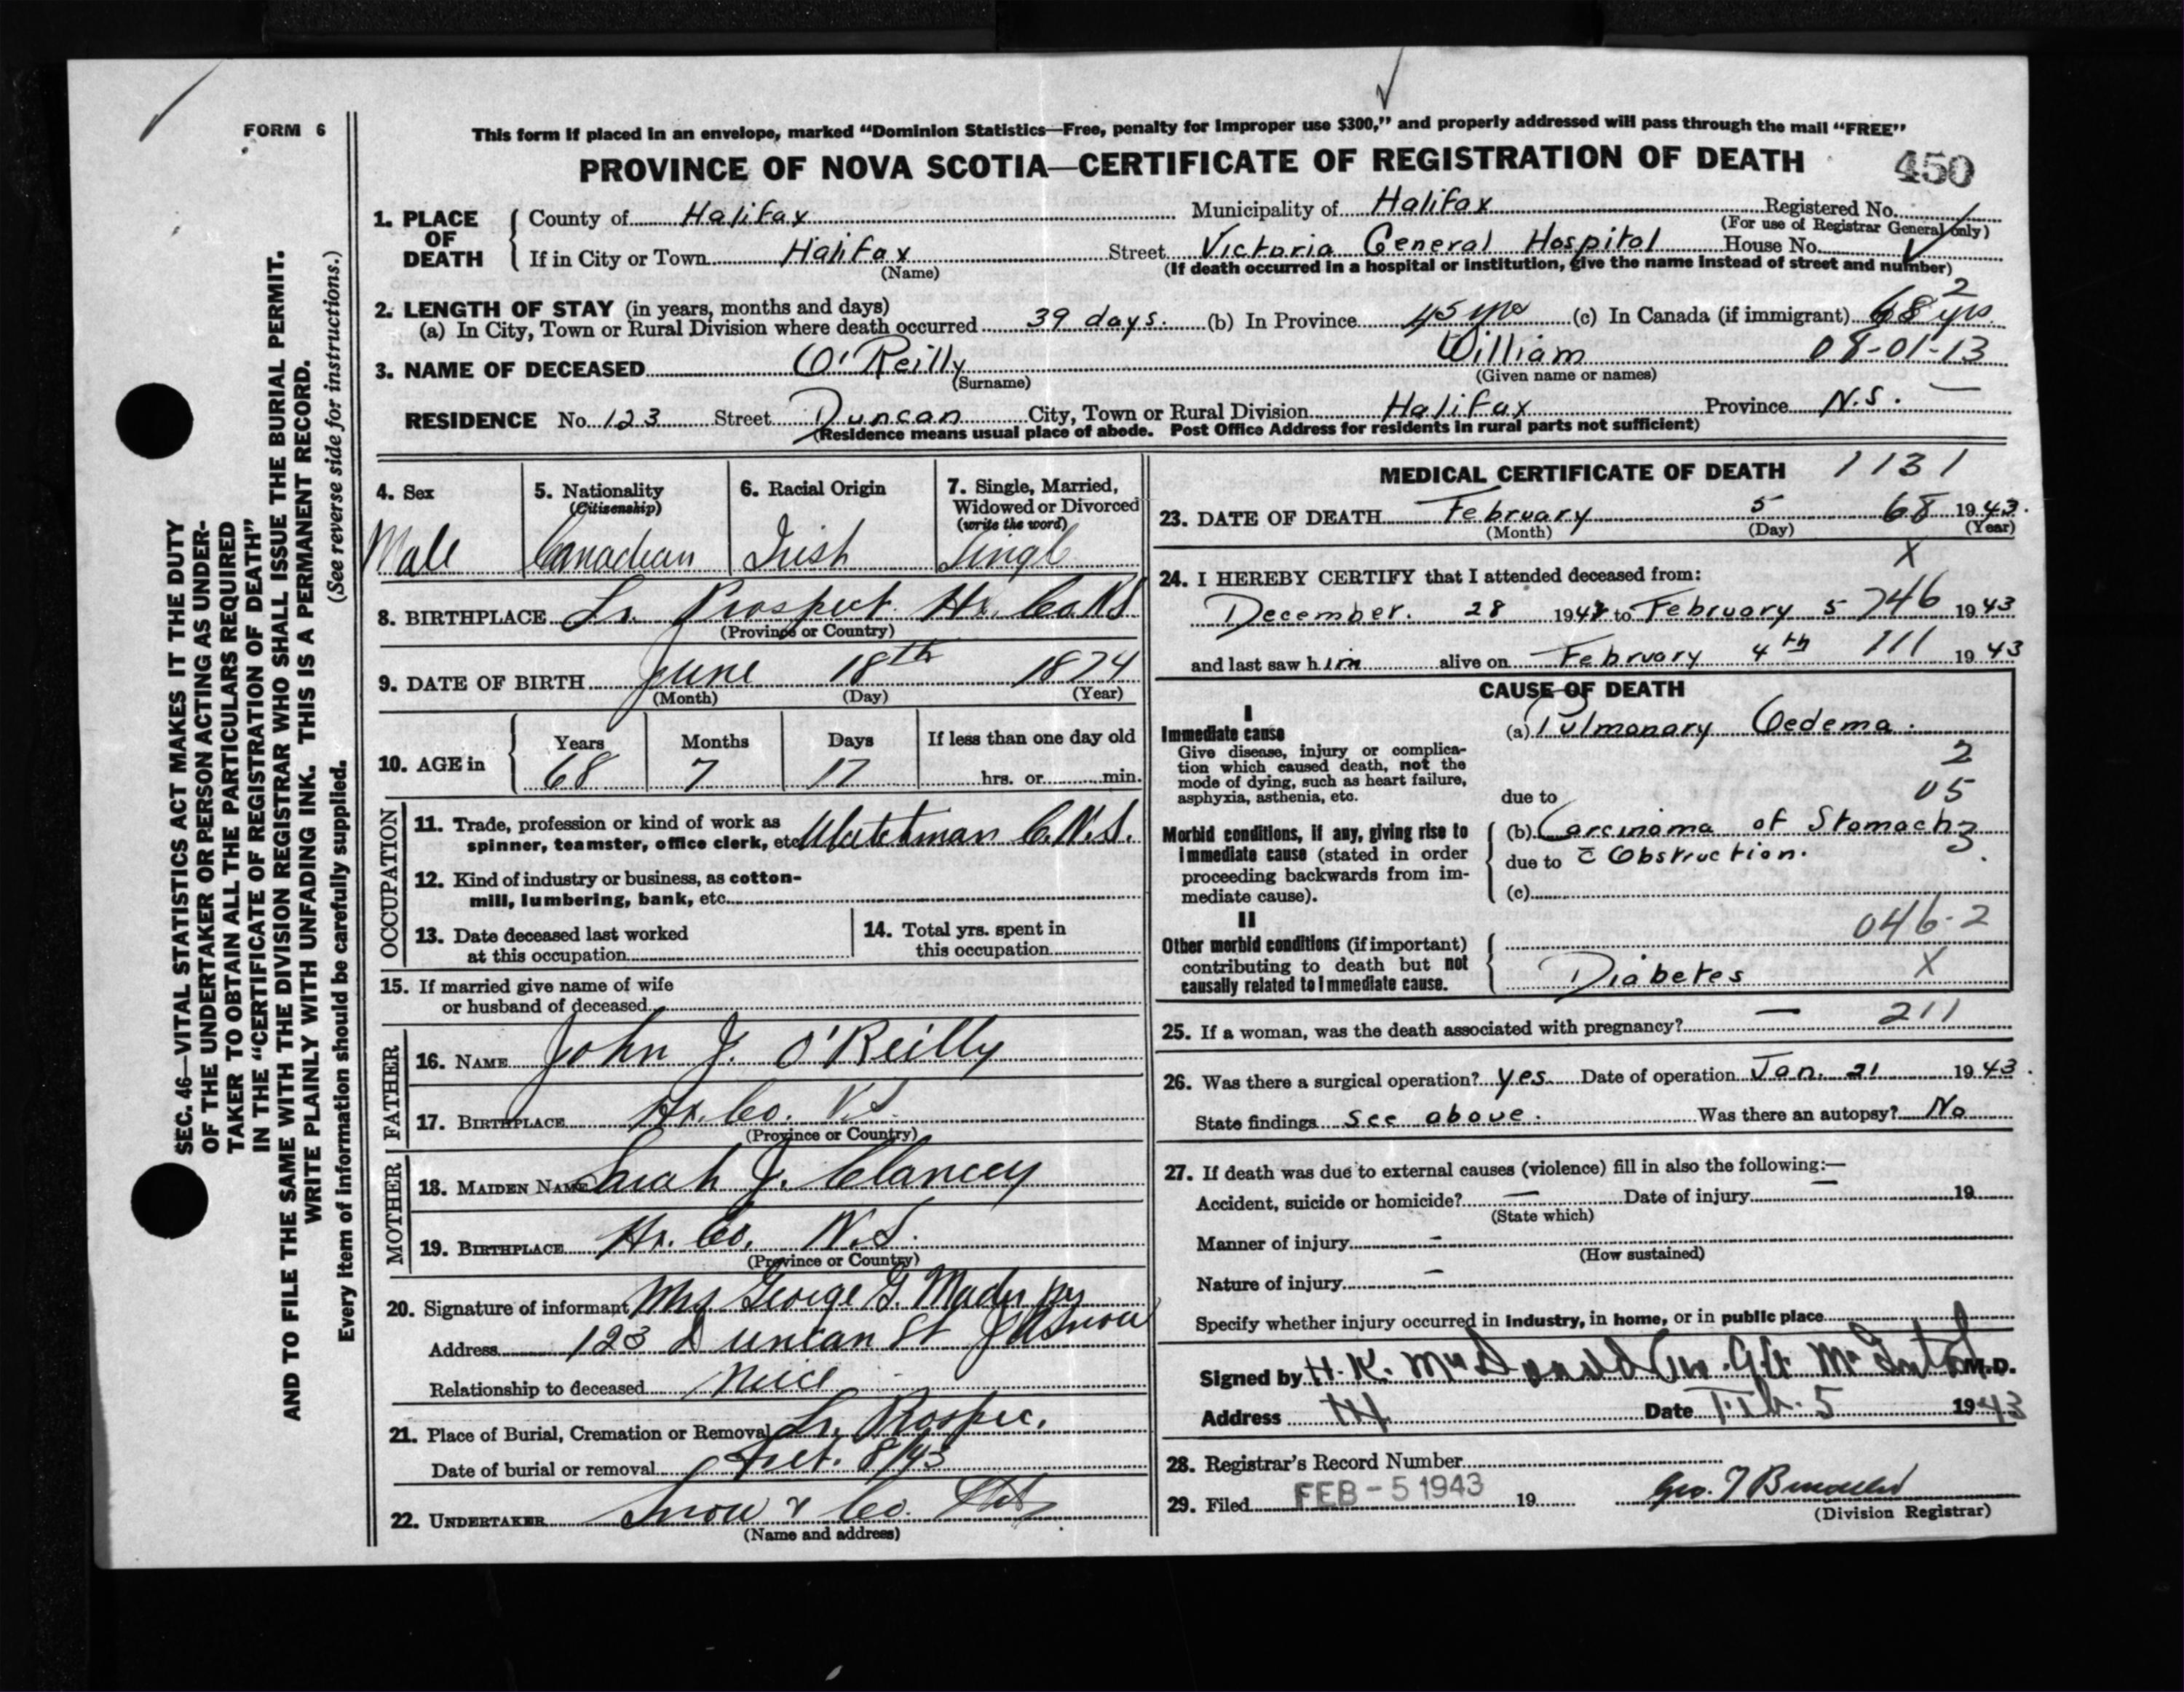 FORM 6
This form if placed in an envelope, marked “Dominion Statistics—Free, penalty for improper use $300,” and properly addressed will pass through the mail “FREE”
PROVINCE OF NOVA SCOTIA—CERTIFICATE OF REGISTRATION OF DEATH 450
SEC. 46—VITAL STATISTICS ACT MAKES IT THE DUTY
OF THE UNDERTAKER OR PERSON ACTING AS UNDER-
TAKER TO OBTAIN ALL THE PARTICULARS REQUIRED
IN THE “CERTIFICATE OF REGISTRATION OF DEATH”
AND TO FILE THE SAME WITH THE DIVISION REGISTRAR WHO SHALL ISSUE THE BURIAL PERMIT.
WRITE PLAINLY WITH UNFADING INK. THIS IS A PERMANENT RECORD.
Every item of information should be carefully supplied. (See reverse side for instructions.)
1. PLACE OF DEATH
County of Halifax Municipality of Halifax Registered No.
(For use of Registrar General only)
If in City or Town Halifax Street Victoria General Hospital House No.
(Name) (If death occurred in a hospital or institution, give the name instead of street and number)
2. LENGTH OF STAY (in years, months and days) 2
(a) In City, Town or Rural Division where death occurred 39 days. (b) In Province 45 yrs (c) In Canada (if immigrant) 68 yrs.
3. NAME OF DECEASED O'Reilly William 08-01-13
(Surname) (Given name or names)
RESIDENCE No. 123 Street Duncan City, Town or Rural Division Halifax Province N.S.
(Residence means usual place of abode. Post Office Address for residents in rural parts not sufficient)
4. Sex
Male
5. Nationality
(Citizenship)
Canadian
6. Racial Origin
Irish
7. Single, Married,
Widowed or Divorced
(write the word)
Single
8. BIRTHPLACE Lr. Prospect Hx. Co. N.S
(Province or Country)
9. DATE OF BIRTH June 18th 1874
(Month) (Day) (Year)
10. AGE in
Years Months Days If less than one day old
68 7 17 hrs. or min.
OCCUPATION
11. Trade, profession or kind of work as
spinner, teamster, office clerk, etc. Watchman C.N.S.
12. Kind of industry or business, as cotton-
mill, lumbering, bank, etc.
13. Date deceased last worked
at this occupation
14. Total yrs. spent in
this occupation
15. If married give name of wife
or husband of deceased
FATHER
16. NAME John J. O'Reilly
17. BIRTHPLACE Hx. Co. N.S.
(Province or Country)
MOTHER
18. MAIDEN NAME Sarah J. Clancey
19. BIRTHPLACE Hx. Co. N.S.
(Province or Country)
20. Signature of informant Mrs George G. Mader per
Address 123 Duncan St J A Snow
Relationship to deceased Neice
21. Place of Burial, Cremation or Removal Lr. Prospec.
Date of burial or removal Feb. 8/43
22. UNDERTAKER Snow & Co.
(Name and address)
MEDICAL CERTIFICATE OF DEATH 1131
23. DATE OF DEATH February 5 68 1943.
(Month) (Day) (Year)
X
24. I HEREBY CERTIFY that I attended deceased from:
December. 28 1942 to February 5 746 1943
and last saw him alive on February 4th 111 1943
CAUSE OF DEATH
I
Immediate cause
Give disease, injury or complica-
tion which caused death, not the
mode of dying, such as heart failure,
asphyxia, asthenia, etc.
(a) Pulmonary Oedema.
2
due to 05
Morbid conditions, if any, giving rise to
immediate cause (stated in order
proceeding backwards from im-
mediate cause).
(b) Carcinoma of Stomach 3
due to c̄ Obstruction. 3
(c)
II
Other morbid conditions (if important)
contributing to death but not
causally related to immediate cause.
046-2
Diabetes X
25. If a woman, was the death associated with pregnancy? — 211
26. Was there a surgical operation? yes Date of operation Jan. 21 1943.
State findings see above. Was there an autopsy? No
27. If death was due to external causes (violence) fill in also the following:—
Accident, suicide or homicide? — Date of injury — 19
(State which)
Manner of injury –
(How sustained)
Nature of injury –
Specify whether injury occurred in industry, in home, or in public place
Signed by H. K. McDonald M.D.
Address Date Feb. 5 1943
28. Registrar's Record Number
29. Filed FEB - 5 1943 19
(Division Registrar)